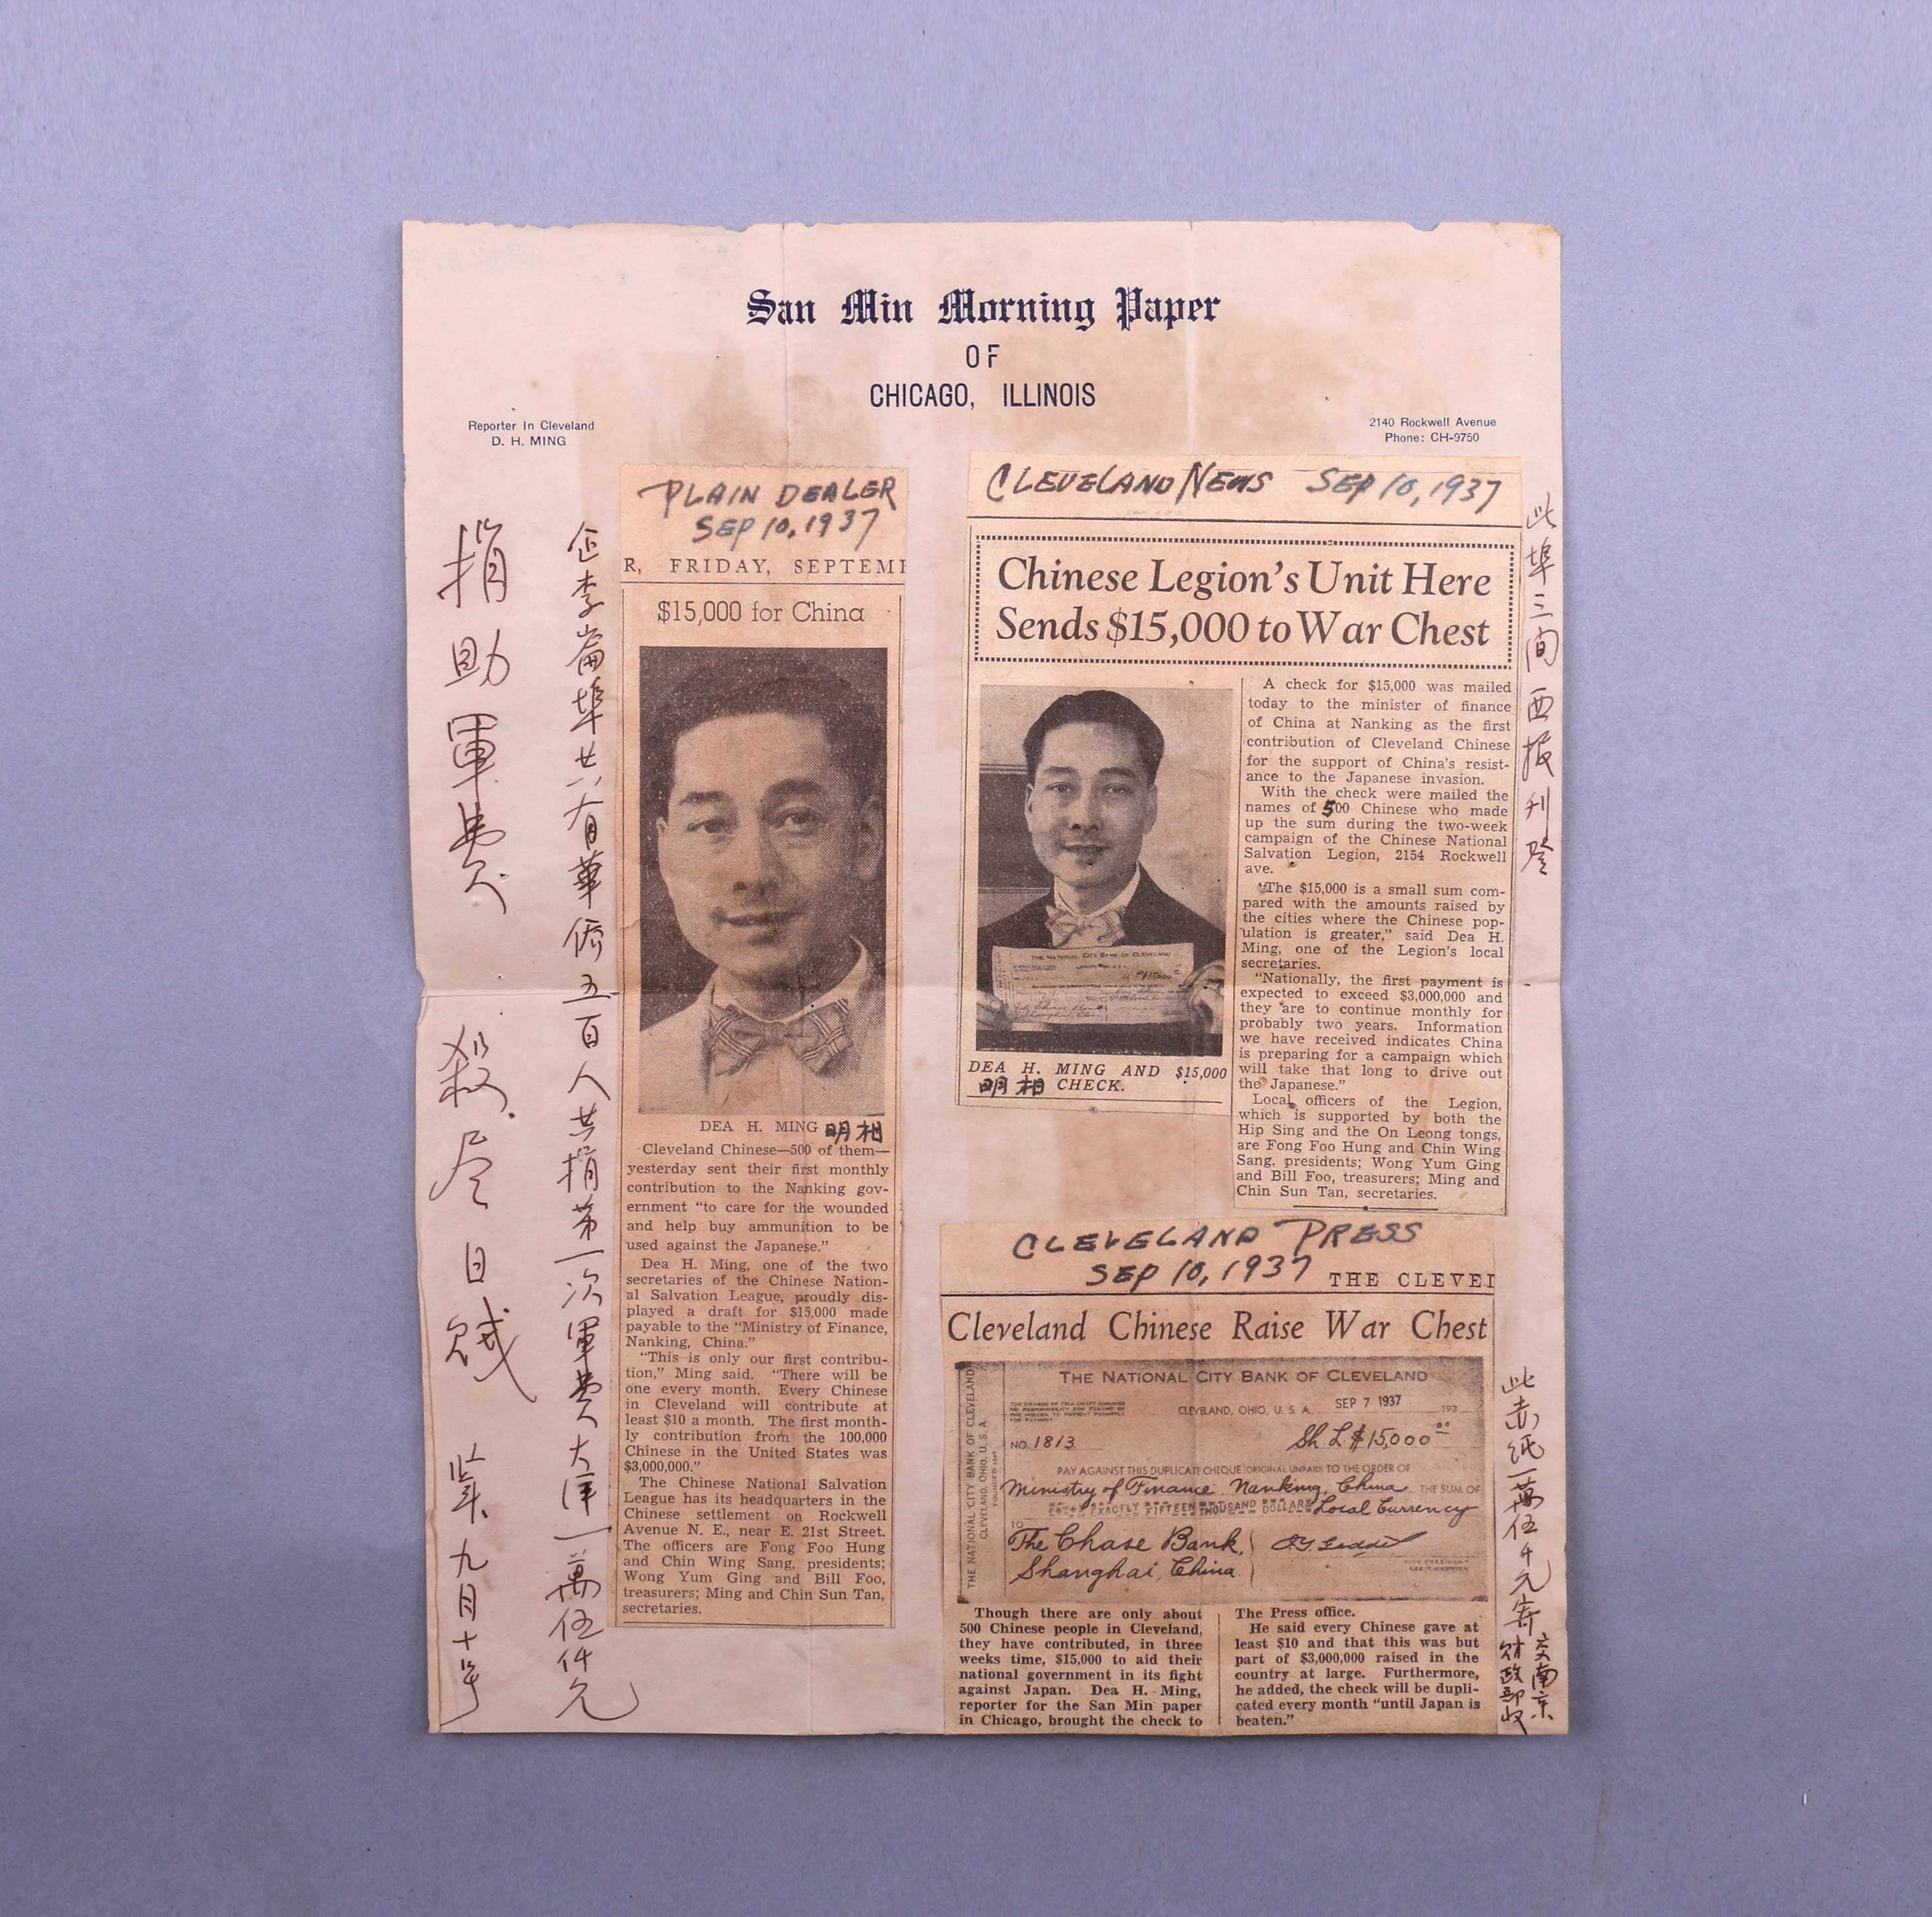 San Min Morning Paper
OF
CHICAGO, ILLINOIS
Reporter In Cleveland
D. H. MING
2140 Rockwell Avenue
Phone: CH-9750
捐助軍費 殺尽日賊 廿六年九月十号
企李崙埠廿六有華僑五百人共捐第一次軍費大洋一萬伍仟元
PLAIN DEALER
SEP 10, 1937
R, FRIDAY, SEPTEM
$15,000 for China
DEA H. MING 明相
Cleveland Chinese—500 of them—
yesterday sent their first monthly
contribution to the Nanking gov-
ernment "to care for the wounded
and help buy ammunition to be
used against the Japanese."
Dea H. Ming, one of the two
secretaries of the Chinese Nation-
al Salvation League, proudly dis-
played a draft for $15,000 made
payable to the "Ministry of Finance,
Nanking, China."
"This is only our first contribu-
tion," Ming said. "There will be
one every month. Every Chinese
in Cleveland will contribute at
least $10 a month. The first month-
ly contribution from the 100,000
Chinese in the United States was
$3,000,000."
The Chinese National Salvation
League has its headquarters in the
Chinese settlement on Rockwell
Avenue N. E., near E. 21st Street.
The officers are Fong Foo Hung
and Chin Wing Sang, presidents;
Wong Yum Ging and Bill Foo,
treasurers; Ming and Chin Sun Tan,
secretaries.
CLEVELAND NEWS SEP 10, 1937
Chinese Legion's Unit Here
Sends $15,000 to War Chest
THE NATIONAL CITY BANK OF CLEVELAND
DEA H. MING AND $15,000
明相 CHECK.
A check for $15,000 was mailed
today to the minister of finance
of China at Nanking as the first
contribution of Cleveland Chinese
for the support of China's resist-
ance to the Japanese invasion.
With the check were mailed the
names of 500 Chinese who made
up the sum during the two-week
campaign of the Chinese National
Salvation Legion, 2154 Rockwell
ave.
"The $15,000 is a small sum com-
pared with the amounts raised by
the cities where the Chinese pop-
ulation is greater," said Dea H.
Ming, one of the Legion's local
secretaries.
"Nationally, the first payment is
expected to exceed $3,000,000 and
they are to continue monthly for
probably two years. Information
we have received indicates China
is preparing for a campaign which
will take that long to drive out
the Japanese."
Local officers of the Legion,
which is supported by both the
Hip Sing and the On Leong tongs,
are Fong Foo Hung and Chin Wing
Sang, presidents; Wong Yum Ging
and Bill Foo, treasurers; Ming and
Chin Sun Tan, secretaries.
此埠三间西报刊登
CLEVELAND PRESS
SEP 10, 1937 THE CLEVE
Cleveland Chinese Raise War Chest
THE NATIONAL CITY BANK OF CLEVELAND
CLEVELAND, OHIO, U. S. A.
THE NATIONAL CITY BANK OF CLEVELAND
CLEVELAND, OHIO, U. S. A. SEP 7 1937 193
NO. 1813 Sh. L. $15,000 00
PAY AGAINST THIS DUPLICATE CHEQUE (ORIGINAL UNPAID) TO THE ORDER OF
Ministry of Finance, Nanking, China THE SUM OF
EXACTLY FIFTEEN THOUSAND DOLLARS Local Currency
TO
The Chase Bank,
Shanghai, China
VICE PRESIDENT
Though there are only about
500 Chinese people in Cleveland,
they have contributed, in three
weeks time, $15,000 to aid their
national government in its fight
against Japan. Dea H. Ming,
reporter for the San Min paper
in Chicago, brought the check to
The Press office.
He said every Chinese gave at
least $10 and that this was but
part of $3,000,000 raised in the
country at large. Furthermore,
he added, the check will be dupli-
cated every month "until Japan is
beaten."
此赤纸一萬伍千元寄交南京
财政部收